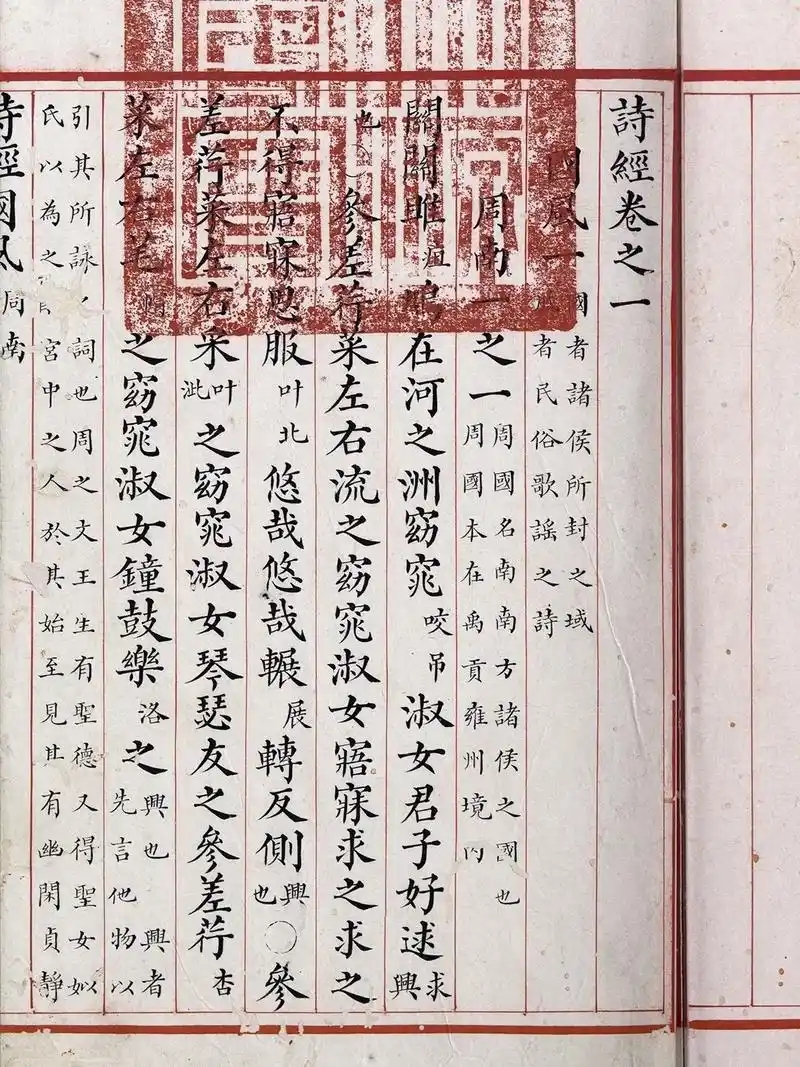 詩經卷之一
國風一國者諸侯所封之域
風者民俗歌謠之詩
周南一之一周國名南南方諸侯之國也
周國本在禹貢雍州境内
關關雎疽鳩在河之洲窈窕咬吊淑女君子好逑求興
也〇參差荇菜左右流之窈窕淑女寤寐求之求之
不得寤寐思服叶北悠哉悠哉輾展轉反側興也〇參
差荇菜左右采叶泚之窈窕淑女琴瑟友之參差荇杏
菜左右芼帽之窈窕淑女鐘鼓樂洛之興也興者
先言他物以
引其所詠之詞也周之文王生有聖德又得聖女姒
氏以為之宮中之人於其始至見其有幽閑貞靜
詩經國風 周南